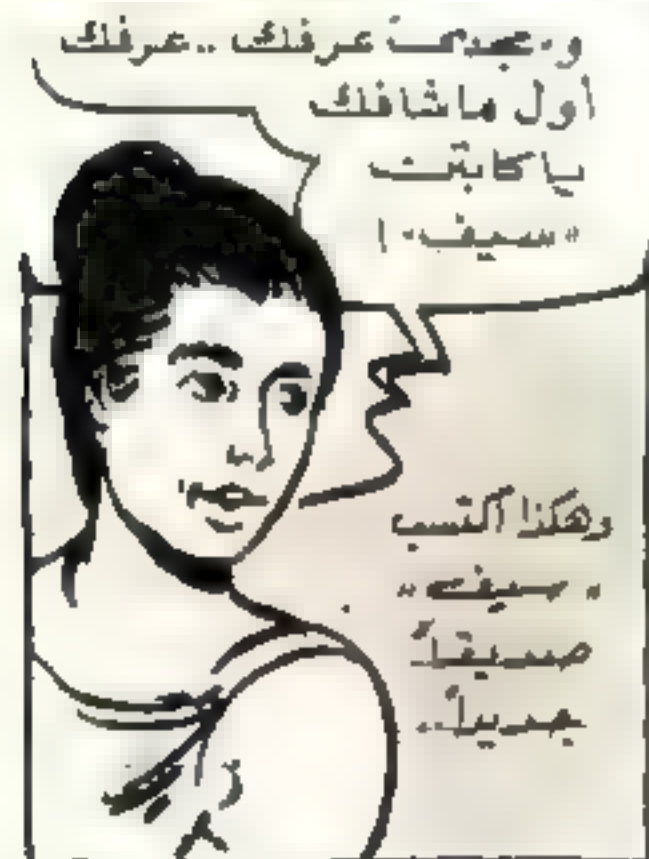 عرفنك ..عرفنك
أول ما شافنك
يا كابتن
«سيف» !
وهكذا اكتسب
«سيف»
صديقاً
جديداً..